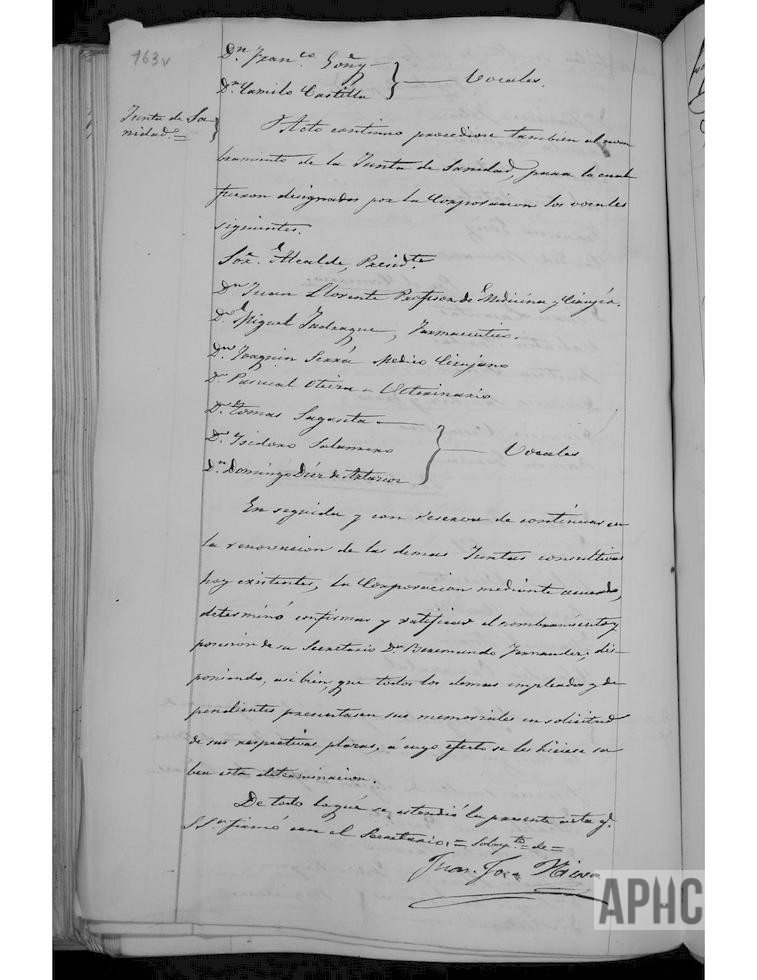 163v
Dn. Franco. Goñy
Dn. Camilo Castilla } — Vocales.
Junta de Sa
nidad =
Acto continuo procediose tambien al nom
bramiento de la Junta de Sanidad, para la cual
fueron designados por la Corporacion los vocales
siguientes.
Sor. Alcalde, Presidte.
Dn. Juan Llorente Profesor de Medicina y Cirugia.
Dn. Miguel, Farmaceutico.
Dn. Joaquin Serra Medico Cirujano
Dn. Pascual Oteiza – Veterinario
Dn. Tomas Sagaseta —
Dn. Isidoro Salamero } — Vocales
Dn. Domingo Diez de
En seguida y con reserva de continuar en
la renovacion de las demas Juntas consultivas
hoy existentes, la Corporacion mediante acuerdo,
determinó confirmar y ratificar el nombramiento y
posesion de su Secretario Dn. Beremundo Fernandez; dis-
poniendo, asi bien, que todos los demas empleados y de
pendientes presentasen sus memoriales en solicitud
de sus respectivas plazas, á cuyo efecto se les hiciese sa
ber esta determinacion.
De todo lo que se estendió la presente acta q.
S. Sa. firmó con el Secretario, = = de =
Juan José
APHC